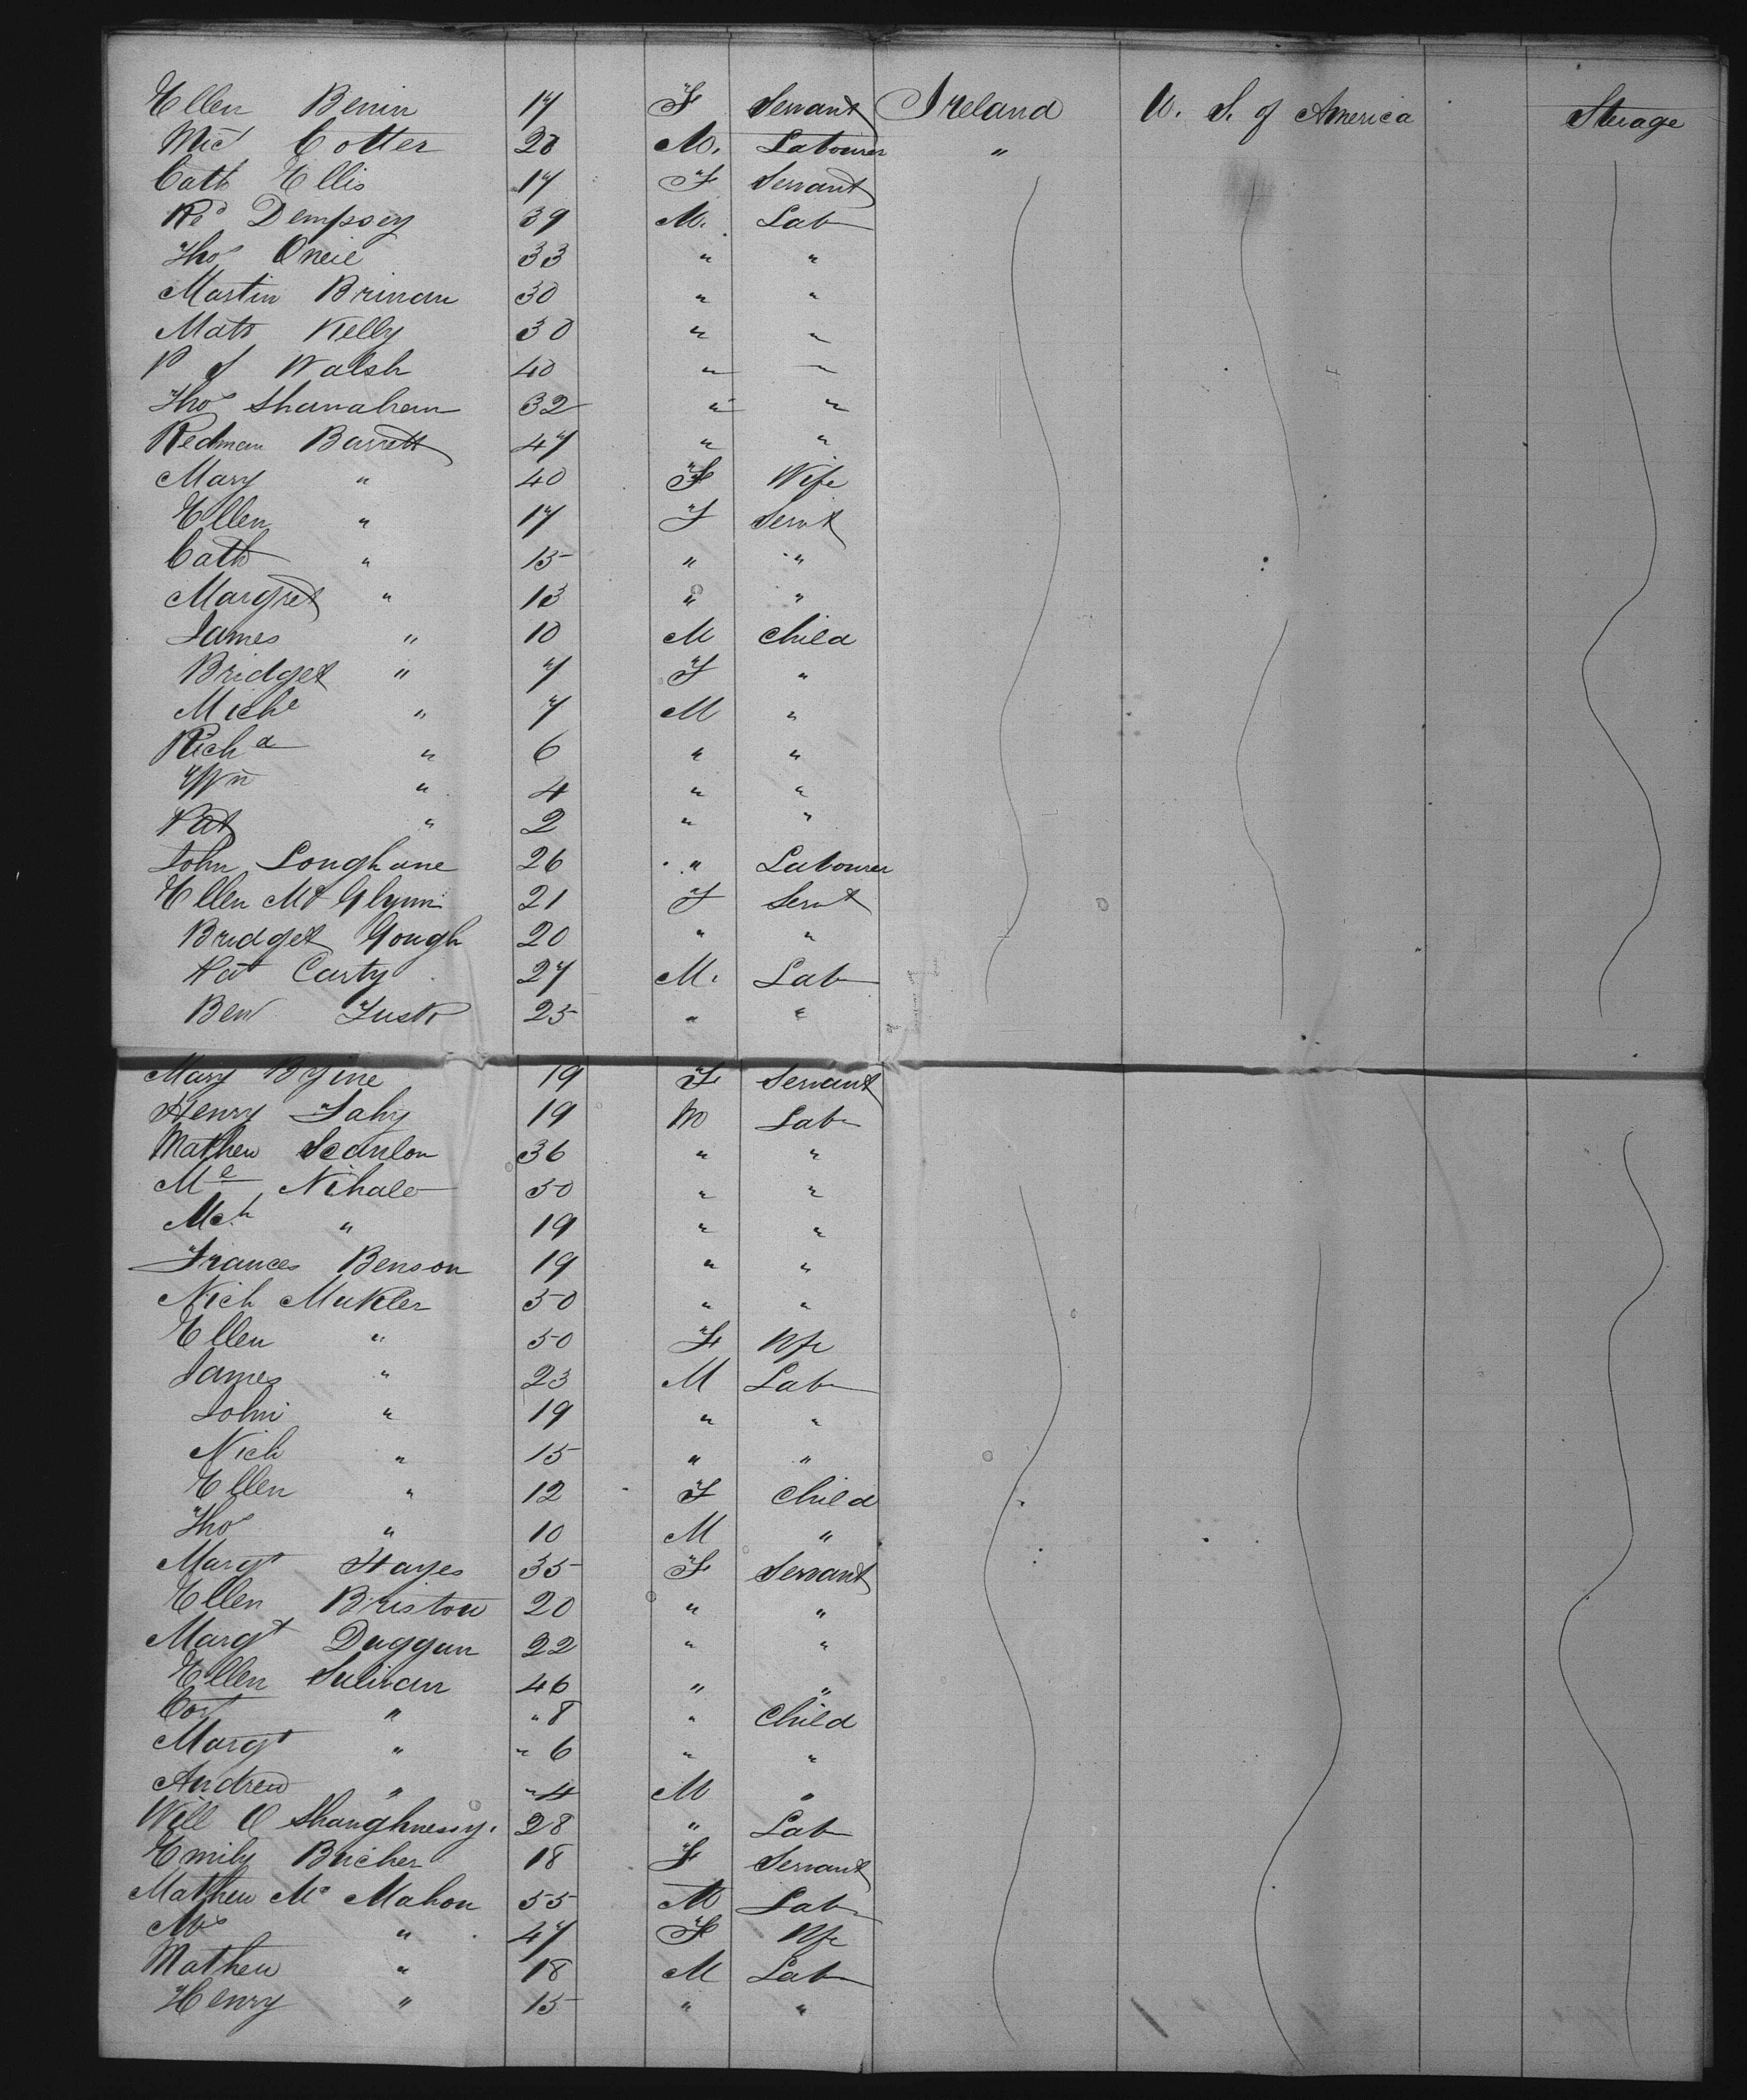 Ellen Benin 17 F Servant Ireland U. S. of America Sterage
Mic Cotter 28 M. Labourer "
Cath Ellis 17 F Servant
Rd Dempsey 39 M. Lab
Thos Oneil 33 " "
Martin Brinan 30 " "
Matt Kelly 30 " "
P J Walsh 40 " "
Thos Shanahan 32 " "
Redman Barrett 47 " "
Mary " 40 F Wife
Ellen " 17 F Servt
Cath " 15 " "
Margret " 13 " "
James " 10 M Child
Bridget " 7 F "
Michl " 7 M "
Richd " 6 " "
Wm " 4 " "
Pat " 2 " "
John Loughane 26 " Labourer
Ellen Mc Glynn 21 F Servt
Bridget Gough 20 " "
Pat Carty 27 M. Lab
Ben Lusk 25 " "
Mary Byine 19 F Servant
Henry Fahy 19 M Lab
Mathew Scanlon 36 " "
Ml Nihale 50 " "
Mch " 19 " "
Frances Benson 19 " "
Nich Makler 50 " "
Ellen " 50 F Wfe
James " 23 M Lab
John " 19 " "
Nich " 15 " "
Ellen " 12 F Child
Thos " 10 M "
Margt Hayes 35 F Servant
Ellen Bristow 20 " "
Margt Duggan 22 " "
Ellen Sulivan 46 " "
" " 8 " Child
Margt " " 6 " "
Andrew " " 4 M "
Will O Shaughnessy. 28 " Lab
Emily Bucher 18 F Servant
Mathew Mc Mahon 55 M Lab
Mrs " 47 F Wfe
Mathew " 18 M Lab
Henry " 15 " "